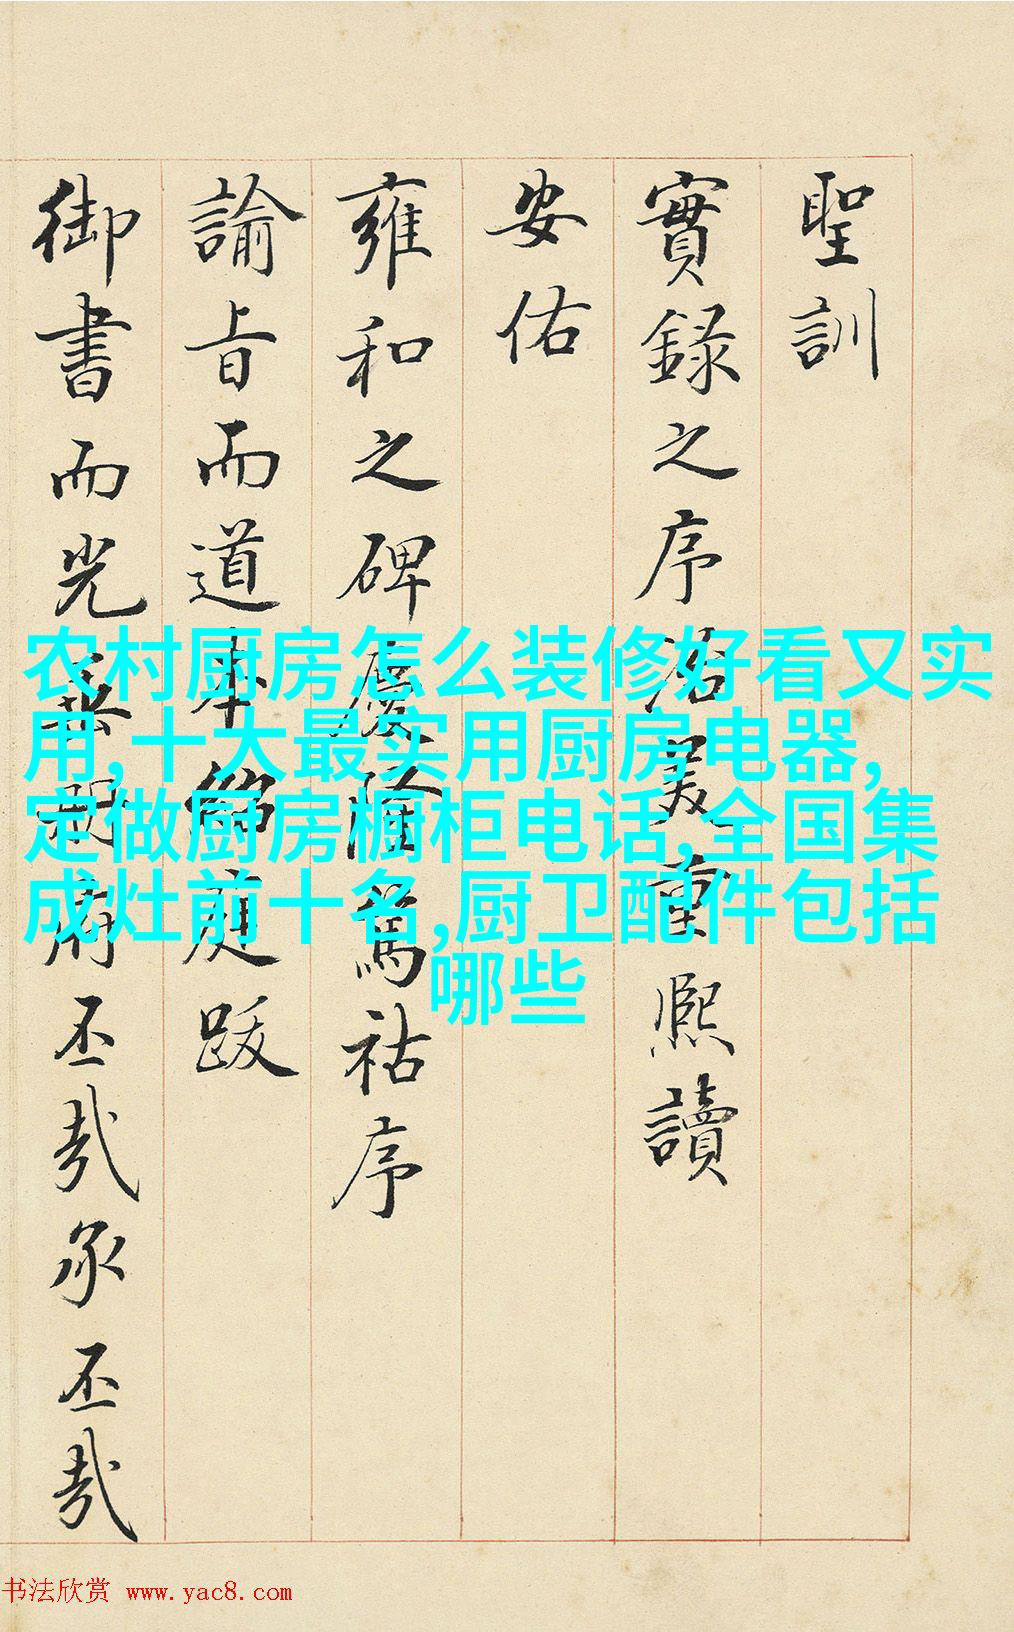 聖訓
實錄之序洽美重熙讀
安佑
雍和之碑慶隆篤祜序
諭旨而道奉紹庭跋
御書而光策府丕哉承丕哉
农村厨房怎么装修好看又实
用,十大最实用厨房电器,
定做厨房橱柜电话,全国集
成灶前十名,厨卫配件包括
哪些
书法欣赏 www.yac8.com